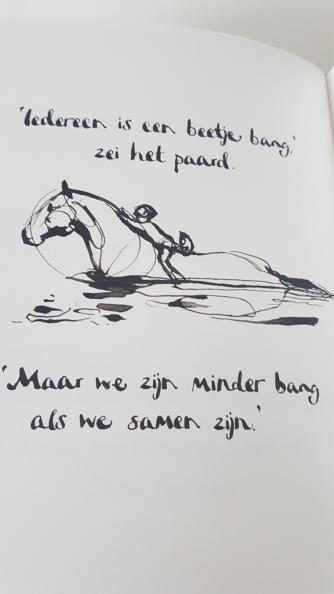 'Iedereen is een beetje bang,'
zei het paard.
'Maar we zijn minder bang
als we samen zijn.'